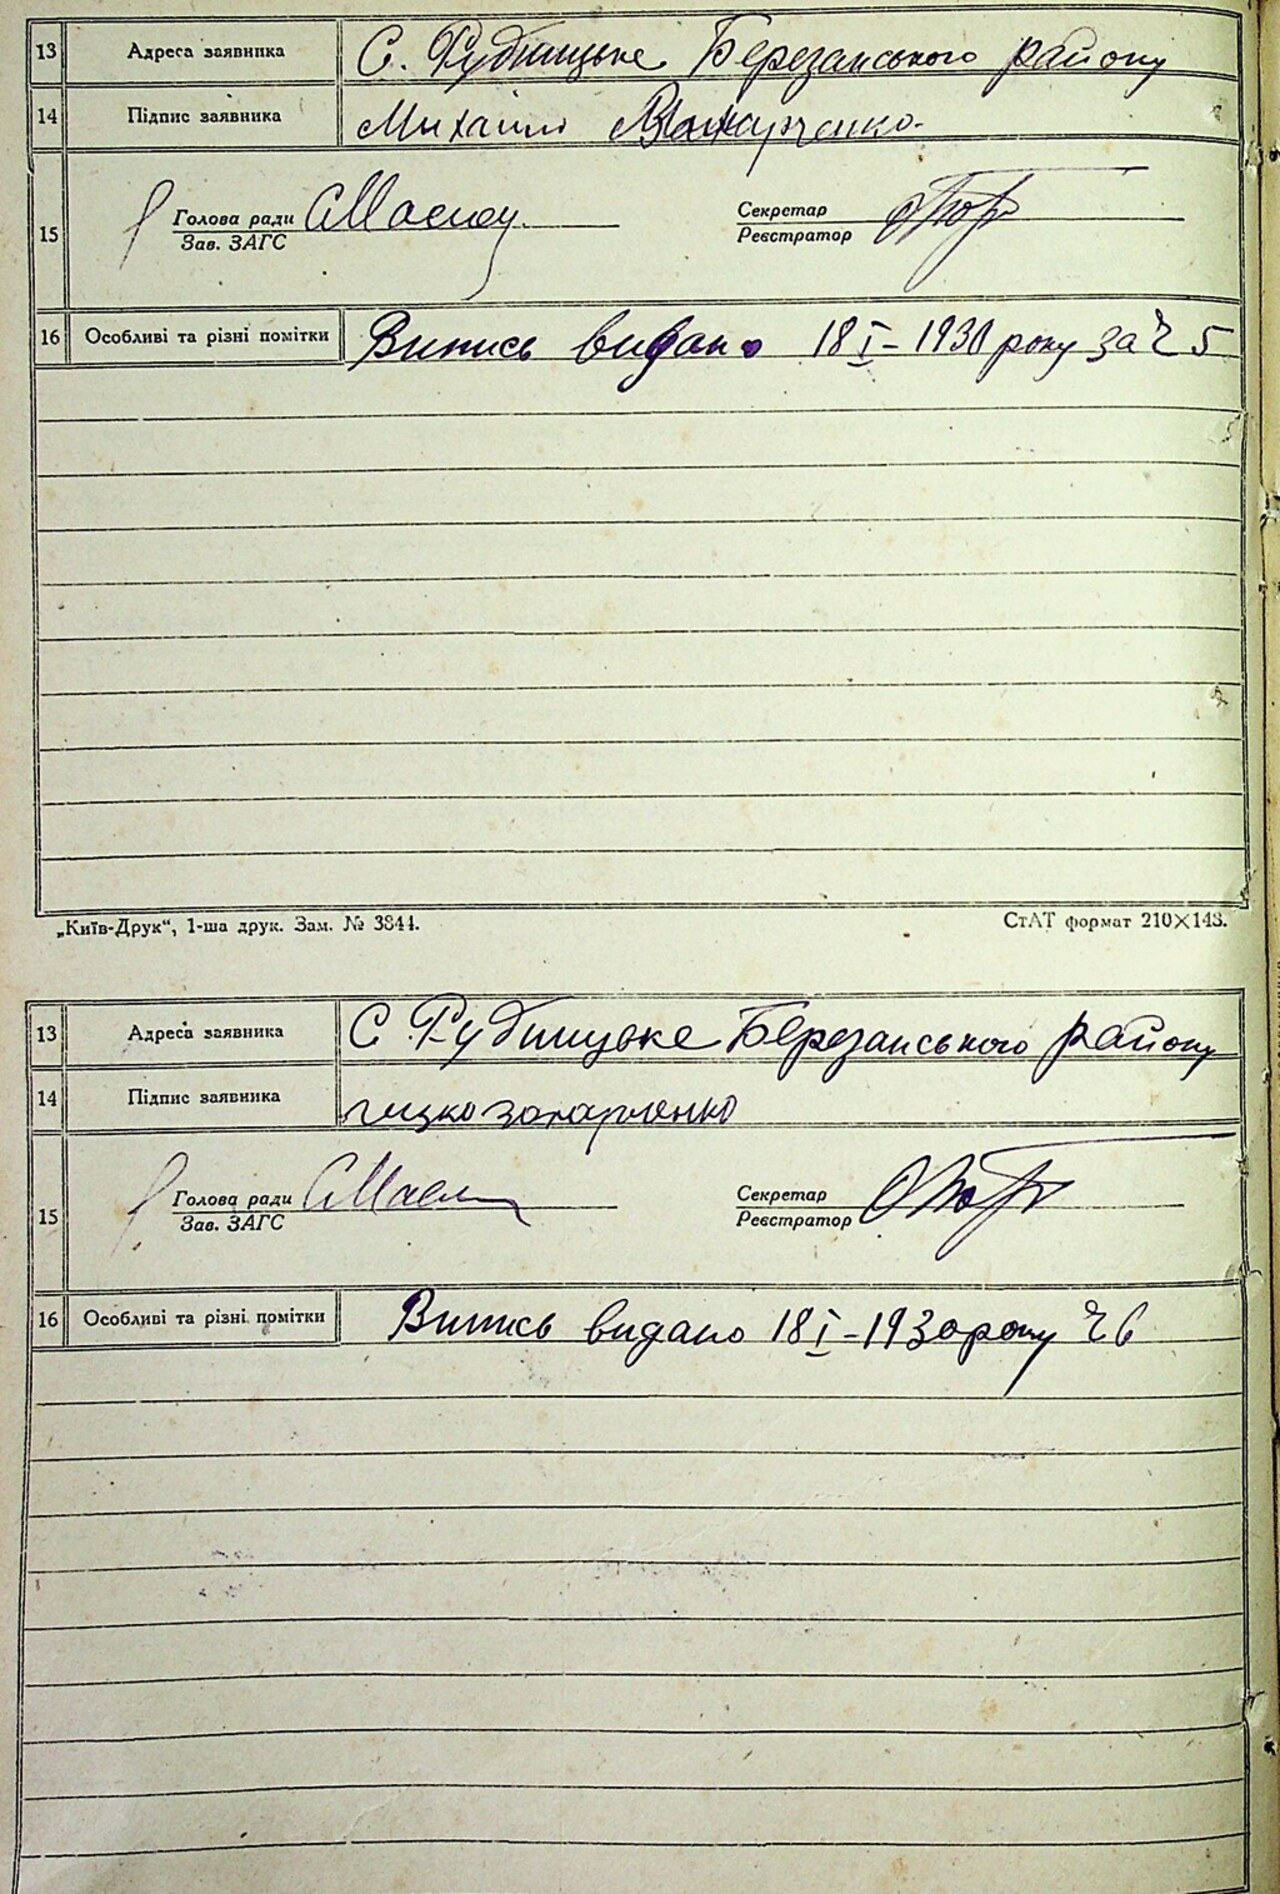 13 Адреса заявника С. Рудницьке Березанського району
14 Підпис заявника Михайло
15 Голова ради Секретар
Зав. ЗАГС Реєстратор
16 Особливі та різні помітки Випись видано 18 I – 1930 року за Ч 5
„Київ-Друк“, 1-ша друк. Зам. № 3844. СтАТ формат 210×148.
13 Адреса заявника С Рудницьке Березанського району
14 Підпис заявника захарченко
15 Голова ради Секретар
Зав. ЗАГС Реєстратор
16 Особливі та різні помітки Випись видано 18 I – 1930 року Ч 6